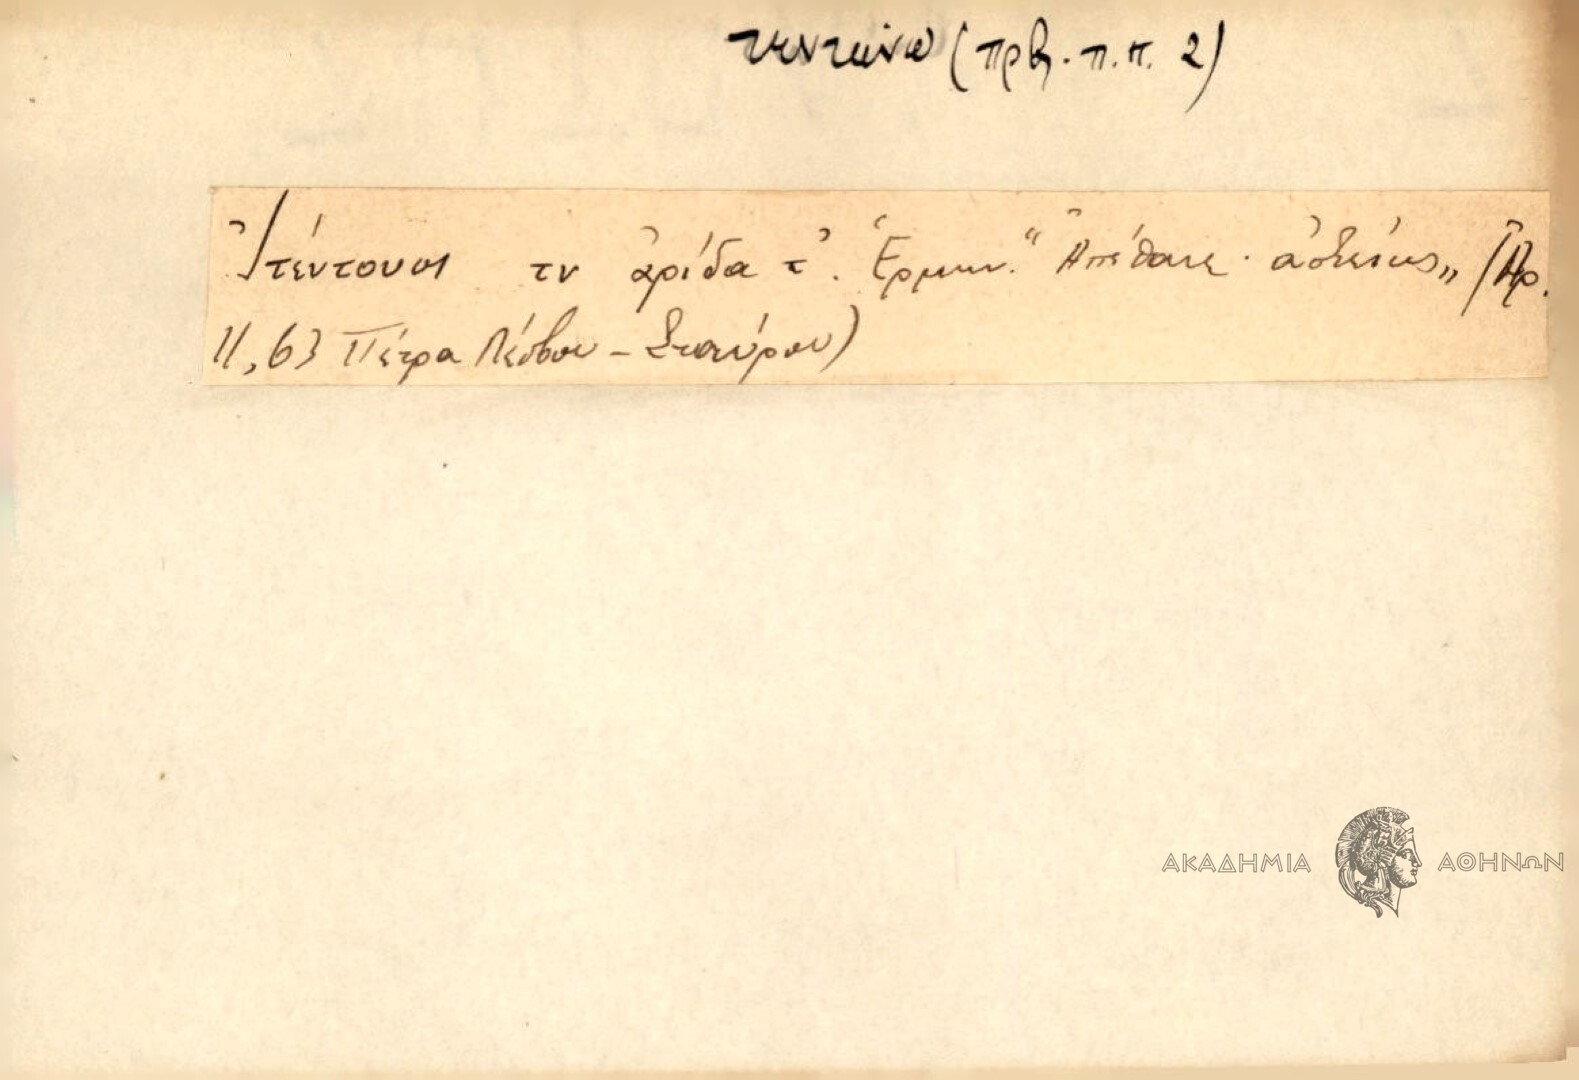 τεντώνω (πρβ. π.π. 2)
Ἰτέντουσι τν ἀρίδα τ'. Ἑρμην. "Ἀπέθανε· ἀστείως„ (Ἀρ.
11, 63 Πέτρα Λέσβου - Σταύρου)
ΑΚΑΔΗΜΙΑ ΑΘΗΝΩΝ